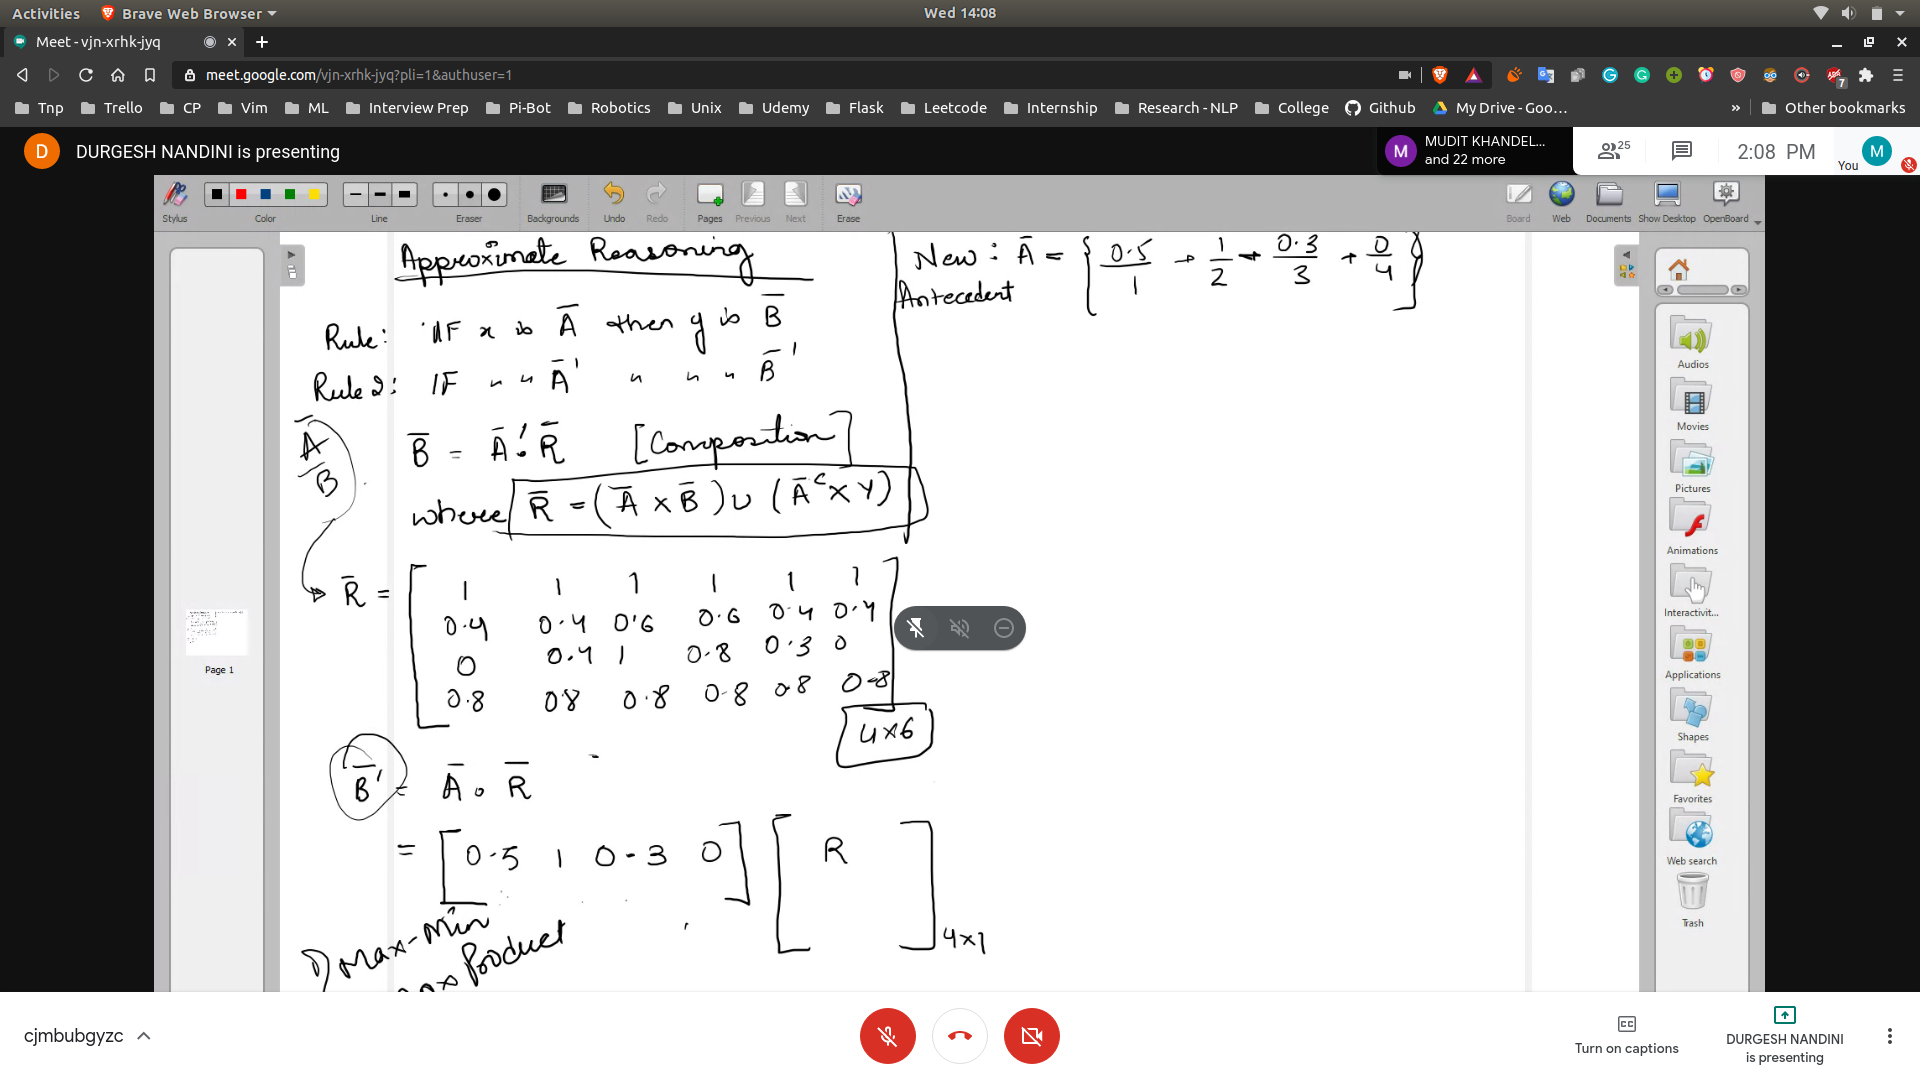 Activities Brave Web Browser Wed 14:08
Meet - vjn-xrhk-jyq
meet.google.com/vjn-xrhk-jyq?pli=1&authuser=1 7
Tnp Trello CP Vim ML Interview Prep Pi-Bot Robotics Unix Udemy Flask Leetcode Internship Research - NLP College Github My Drive - Goo... » Other bookmarks
D DURGESH NANDINI is presenting
M MUDIT KHANDEL...
and 22 more
25 2:08 PM You M
Stylus Color Line Eraser Backgrounds Undo Redo Pages Previous Next Erase Board Web Documents Show Desktop OpenBoard
Approximate Reasoning
Rule: IF x is A̅ then y is B̅
Rule 2: IF " " A̅' " " " B̅'
A̅
B̅
B̅ = A̅'∘R̅ [Composition]
where R̅ = (A̅ × B̅) ∪ (A̅ᶜ × Y)
R̅ =
1 1 1 1 1 1
0.4 0.4 0.6 0.6 0.4 0.4
0 0.4 1 0.8 0.3 0
0.8 0.8 0.8 0.8 0.8 0.8
4×6
B̅' = A̅ ∘ R̅
= [0.5 1 0.3 0] [R] 4×1
1) Max-Min
Product
New: A̅ = {0.5/1 + 1/2 + 0.3/3 + 0/4}
Antecedent
Page 1
Audios
Movies
Pictures
Animations
Interactivit...
Applications
Shapes
Favorites
Web search
Trash
cjmbubgyzc
CC
Turn on captions
DURGESH NANDINI
is presenting